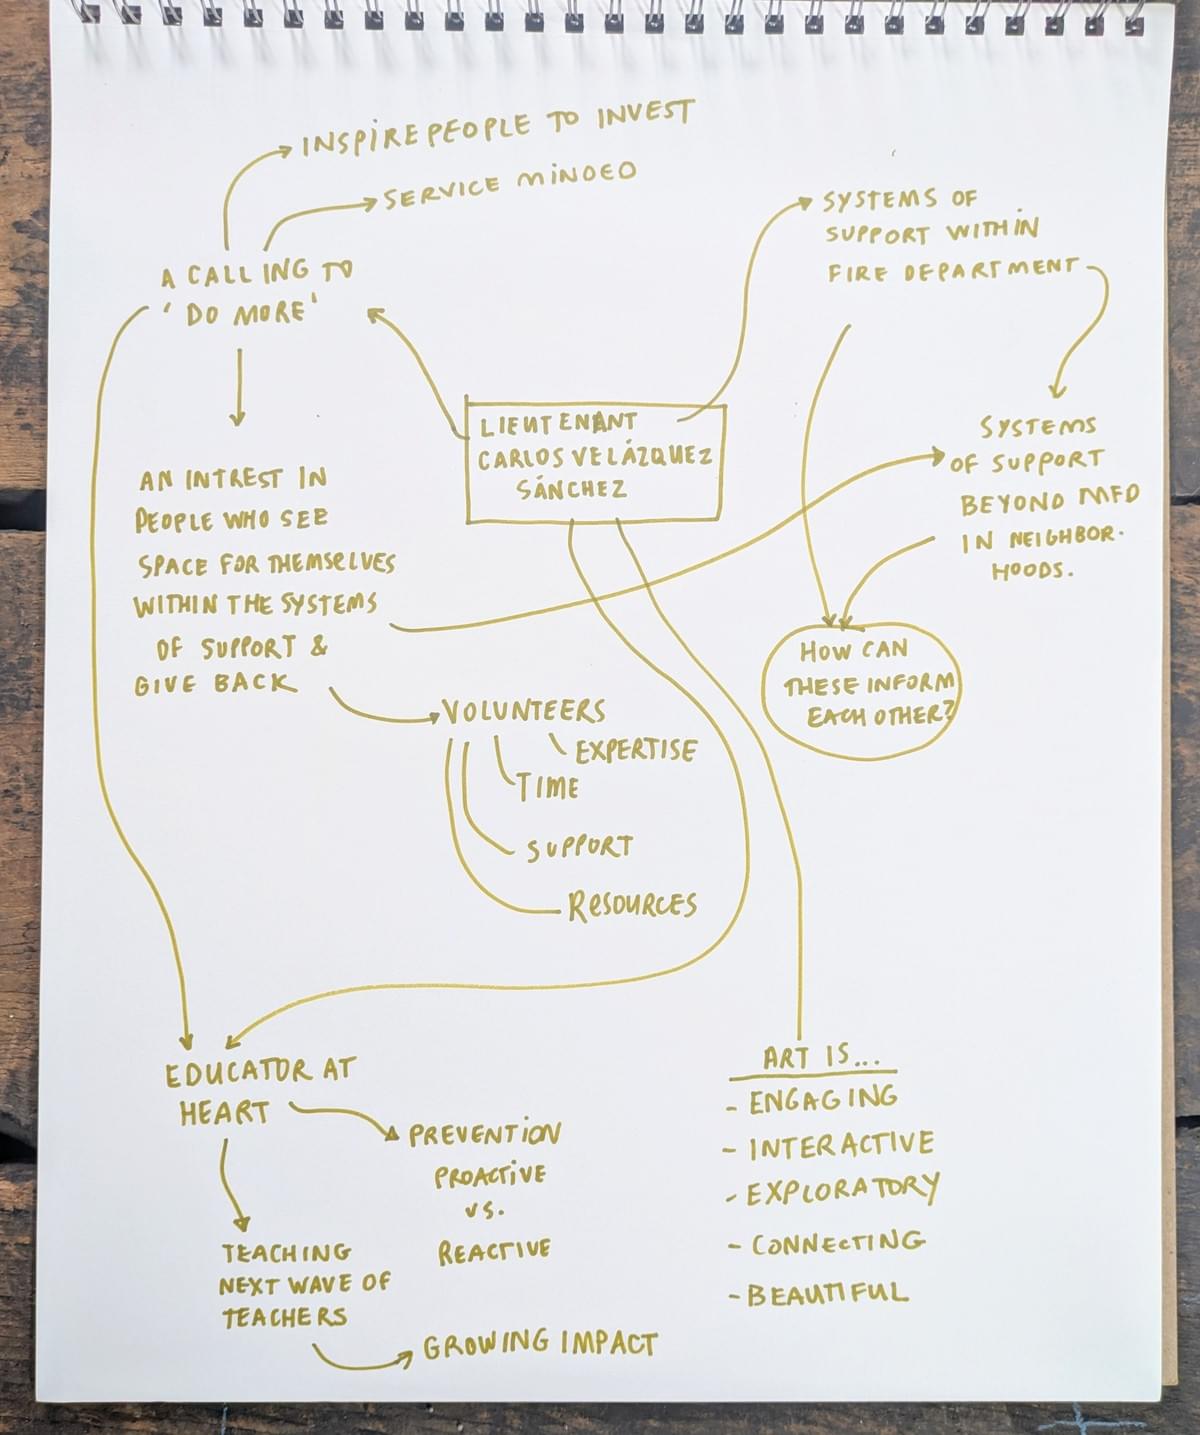 INSPIRE PEOPLE TO INVEST
SERVICE MINDED
A CALLING TO
'DO MORE'
SYSTEMS OF
SUPPORT WITHIN
FIRE DEPARTMENT
LIEUTENANT
CARLOS VELÁZQUEZ
SÁNCHEZ
SYSTEMS
OF SUPPORT
BEYOND MFD
IN NEIGHBOR-
HOODS.
AN INTREST IN
PEOPLE WHO SEE
SPACE FOR THEMSELVES
WITHIN THE SYSTEMS
OF SUPPORT &
GIVE BACK
HOW CAN
THESE INFORM
EACH OTHER?
VOLUNTEERS
EXPERTISE
TIME
SUPPORT
RESOURCES
EDUCATOR AT
HEART
PREVENTION
PROACTIVE
VS.
REACTIVE
TEACHING
NEXT WAVE OF
TEACHERS
GROWING IMPACT
ART IS...
- ENGAGING
- INTERACTIVE
- EXPLORATORY
- CONNECTING
- BEAUTIFUL